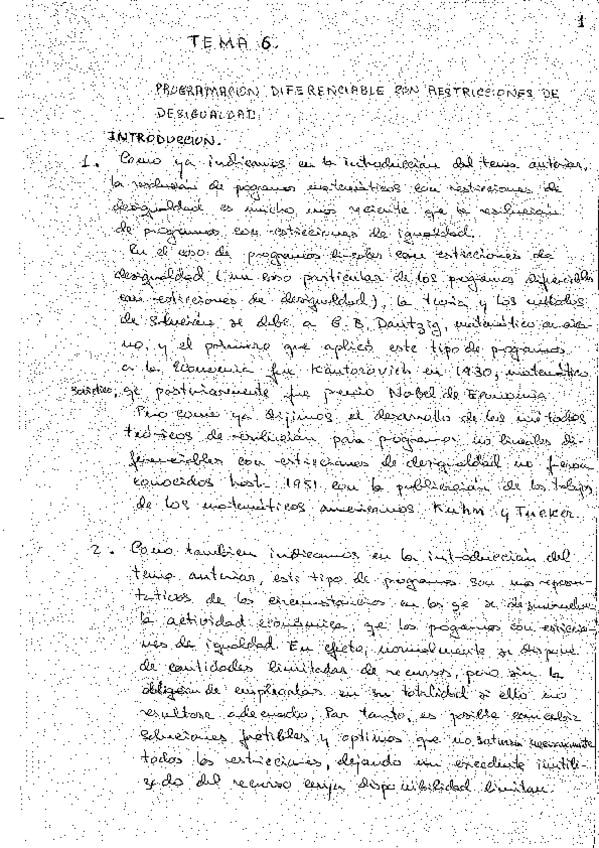 1
TEMA 6.
PROGRAMACION DIFERENCIABLE CON RESTRICCIONES DE
DESIGUALDAD.
INTRODUCCION.
1. Como ya indicamos en la introducción del tema anterior,
la resolución de pogramas matemáticos con restricciones de
desigualdad es mucho mas reciente que la resolución
de programas con restricciones de igualdad.
En el caso de programas lineales con restricciones de
desigualdad (un caso particular de los pogramas diferenciables
con restricciones de desigualdad), la teoria y los metodos
de solución se debe a G. B. Dantzig, matemático america-
no, y el primero que aplicó este tipo de programas
a la Economia fue Kantorovich en 1930, matemático
soviético, qe posteriormente fue premio Nobel de Economia
Pero como ya dijimos el desarrollo de los metodos
teóricos de resolución para programas no lineales di-
ferenciables con restricciones de desigualdad no fueron
conocidos hasta 1951 con la publicación de los trabajos
de los matemáticos americanos Kuhn y Tucker.
2. Como tambien indicamos en la introducción del
tema anterior, este tipo de programas son mas represen-
tativos de las circunstancias en las qe se desenvuelve
la actividad económica qe los pogramas con restriccio-
nes de igualdad. En efecto, normalmente se dispone
de cantidades limitadas de recursos, pero sin la
obligación de emplearlas en su totalidad si ello no
resultase adecuado. Por tanto, es posible concebir
soluciones factibles y optimas que no saturen necesariamente
todas las restricciones, dejando un excedente inutili-
zado del recurso cuya disponibilidad limitan.